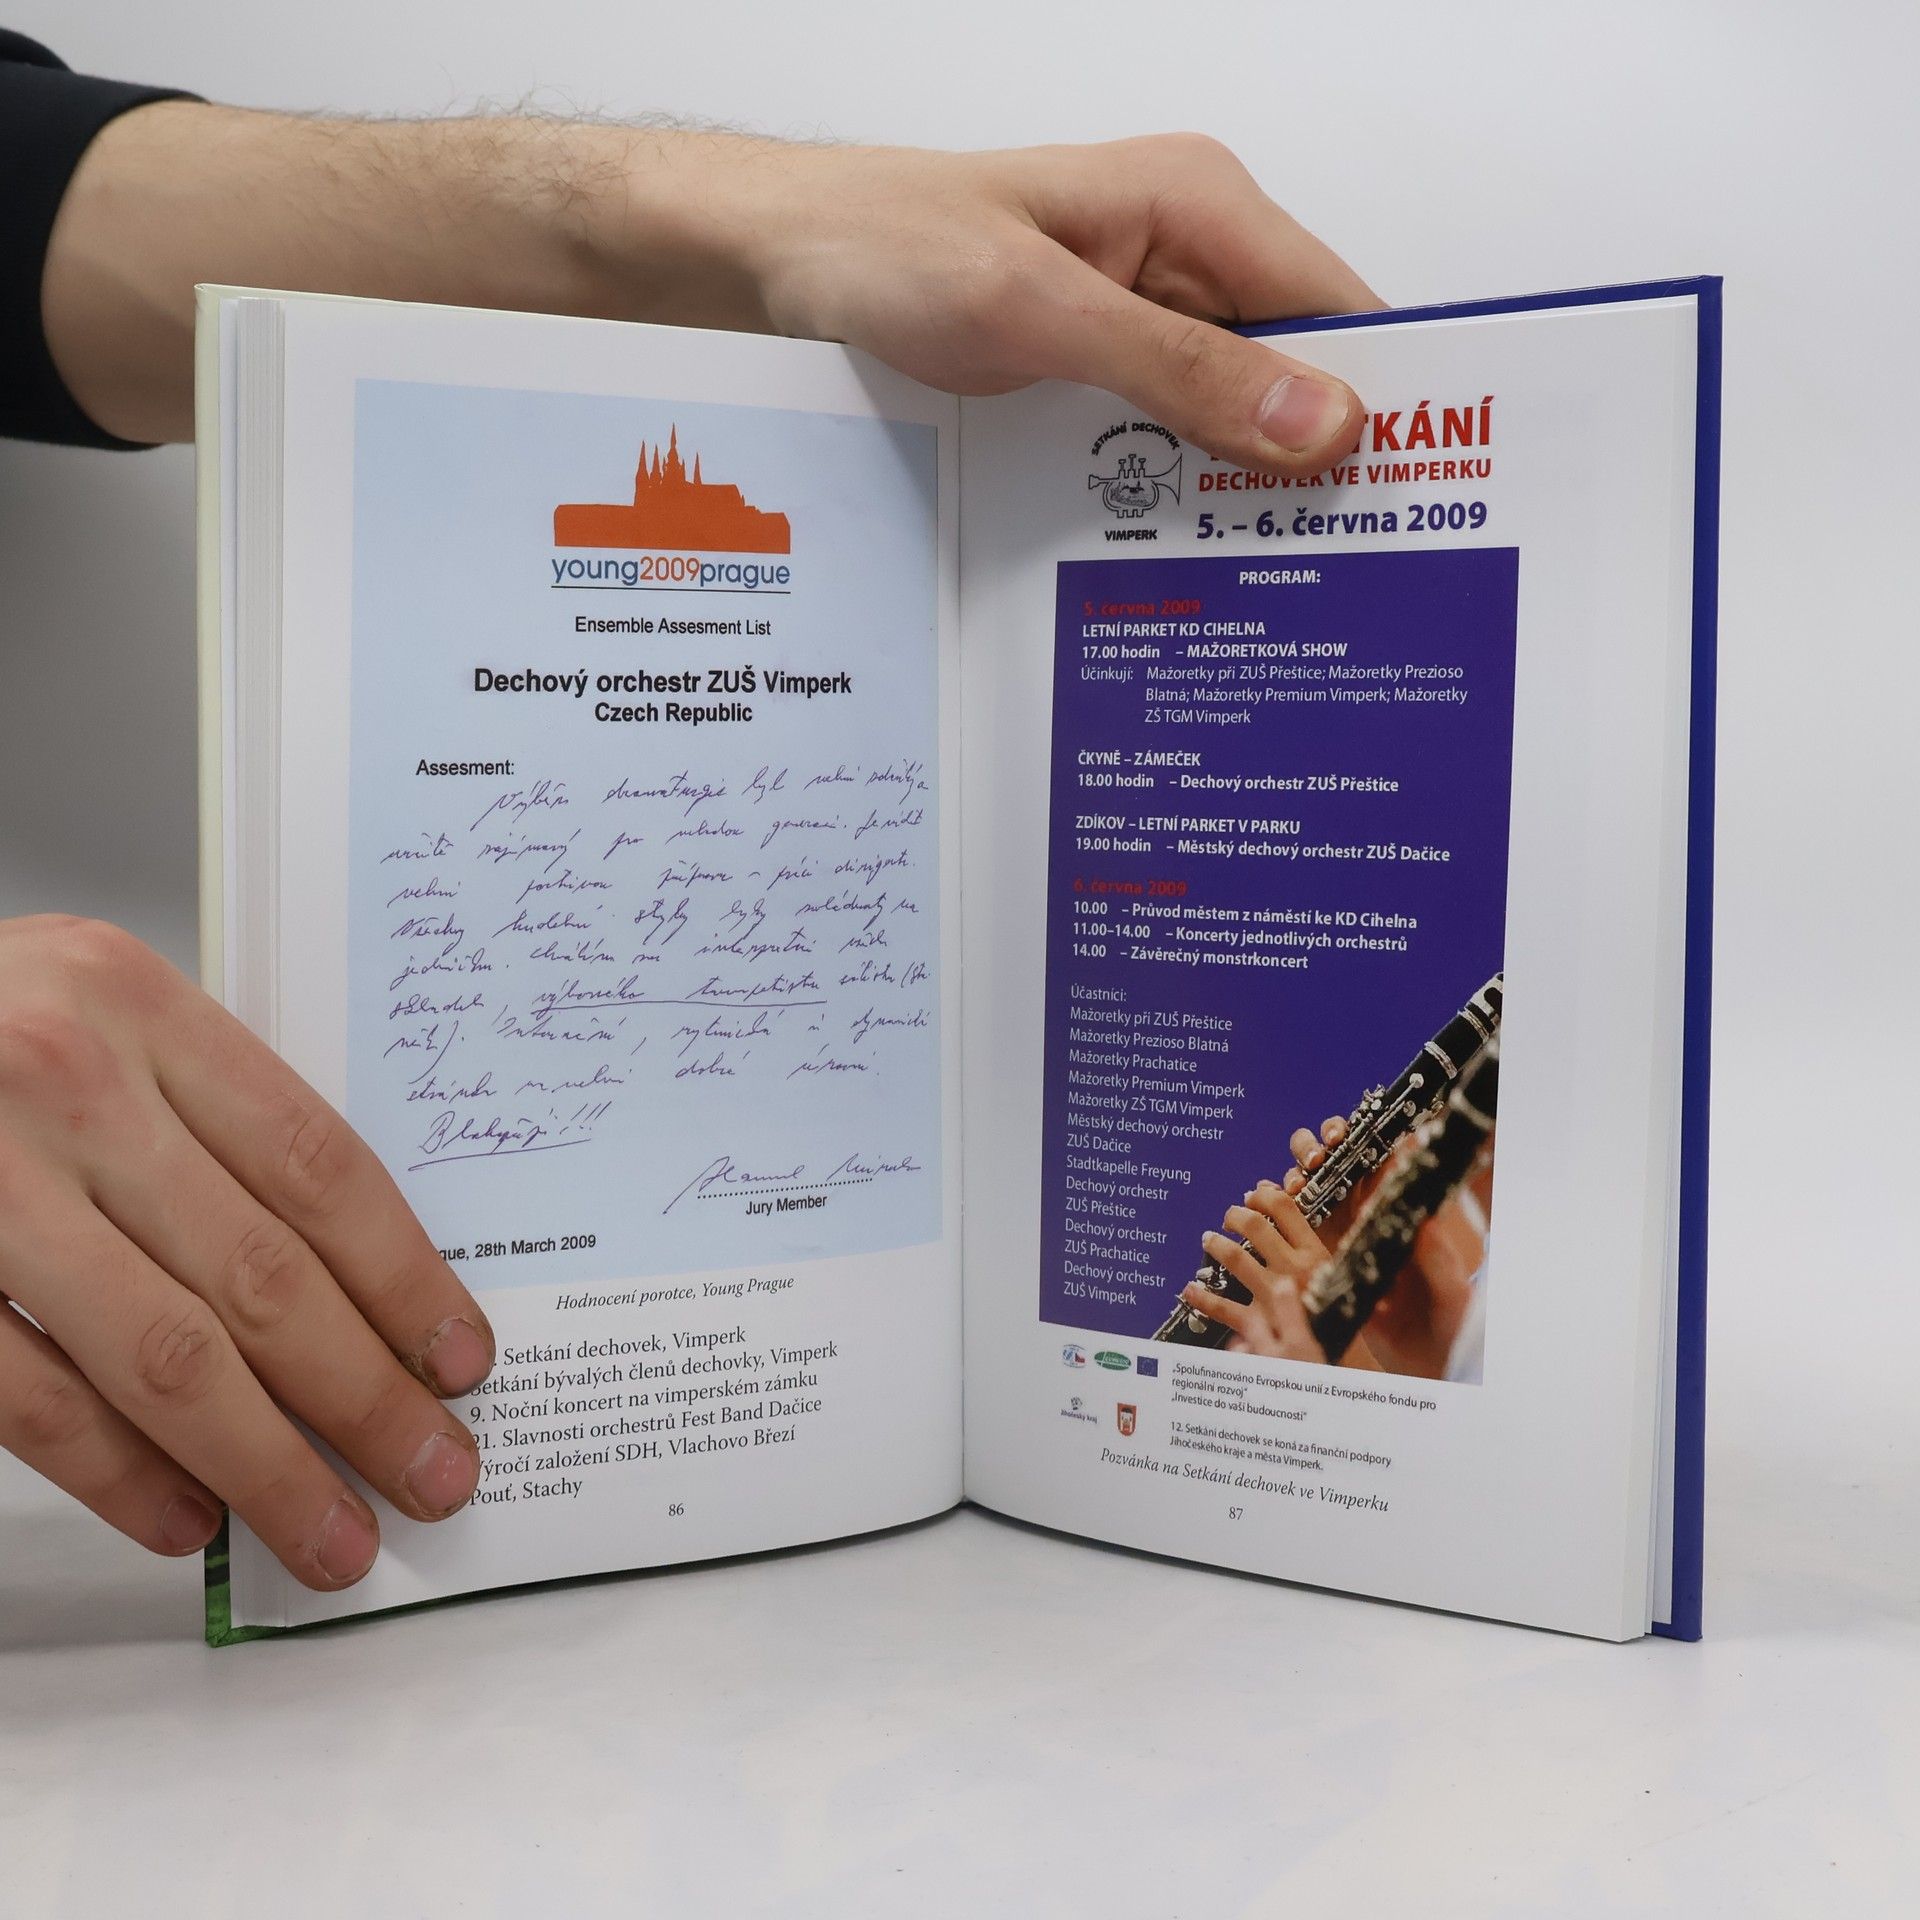 young2009prague
Ensemble Assesment List
Dechový orchestr ZUŠ Vimperk
Czech Republic
Assesment:
Výběr dramaturgie byl velmi
určitě zajímavý pro mladou generaci. Je vidět
velmi poctivou přípravu – práci dirigenta.
Všechny hudební styly byly
výborného trumpetistu
Intonační, rytmická i dynamická
stránka na velmi dobré úrovni.
Blahopřeji!!!
Jury Member
28th March 2009
Hodnocení porotce, Young Prague
Setkání dechovek, Vimperk
Setkání bývalých členů dechovky, Vimperk
9. Noční koncert na vimperském zámku
21. Slavnosti orchestrů Fest Band Dačice
Výročí založení SDH, Vlachovo Březí
Pouť, Stachy
86
SETKÁNÍ DECHOVEK
VIMPERK
TKÁNÍ
DECHOVEK VE VIMPERKU
5. – 6. června 2009
PROGRAM:
5. června 2009
LETNÍ PARKET KD CIHELNA
17.00 hodin – MAŽORETKOVÁ SHOW
Účinkují: Mažoretky při ZUŠ Přeštice; Mažoretky Prezioso
Blatná; Mažoretky Premium Vimperk; Mažoretky
ZŠ TGM Vimperk
ČKYNĚ – ZÁMEČEK
18.00 hodin – Dechový orchestr ZUŠ Přeštice
ZDÍKOV – LETNÍ PARKET V PARKU
19.00 hodin – Městský dechový orchestr ZUŠ Dačice
6. června 2009
10.00 – Průvod městem z náměstí ke KD Cihelna
11.00–14.00 – Koncerty jednotlivých orchestrů
14.00 – Závěrečný monstrkoncert
Účastníci:
Mažoretky při ZUŠ Přeštice
Mažoretky Prezioso Blatná
Mažoretky Prachatice
Mažoretky Premium Vimperk
Mažoretky ZŠ TGM Vimperk
Městský dechový orchestr
ZUŠ Dačice
Stadtkapelle Freyung
Dechový orchestr
ZUŠ Přeštice
Dechový orchestr
ZUŠ Prachatice
Dechový orchestr
ZUŠ Vimperk
„Spolufinancováno Evropskou unií z Evropského fondu pro
regionální rozvoj“
„Investice do vaší budoucnosti“
Jihočeský kraj
12. Setkání dechovek se koná za finanční podpory
Jihočeského kraje a města Vimperk.
Pozvánka na Setkání dechovek ve Vimperku
87